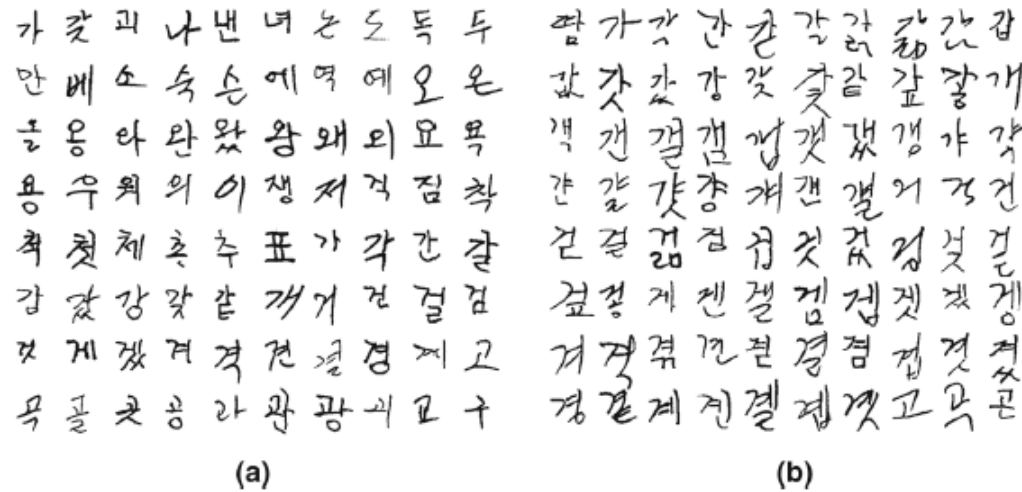 가 갖 괴 나 낸 녀 는 도 독 두
만 베 소 숙 슨 에 역 예 오 온
올 옹 와 완 왔 왕 왜 외 요 욕
용 우 워 의 이 쟁 저 직 짐 착
척 첫 체 추 표 가 각 간 갈
갑 값 강 갖 같 개 거 건 걸 검
것 게 겠 겨 격 견 결 경 계 고
곡 골 곳 공 과 관 광 괴 교 구
(a)
땀 가 각 간 갇 갈 갉 갊 갑
값 갓 갔 강 갖 갗 같 갚 갛 개
객 갠 갤 갬 갭 갯 갰 갱 갸 갹
갼 걀 걋 걍 걔 걘 걜 거 걱 건
걷 걸 걺 검 겁 것 겄 겅 겆 겉
겊 겋 게 겐 겔 겜 겝 겟 겠 겡
겨 격 겪 견 겯 결 겸 겹 겻 겼
경 곁 계 곈 곌 곕 곗 고 곡 곤
(b)